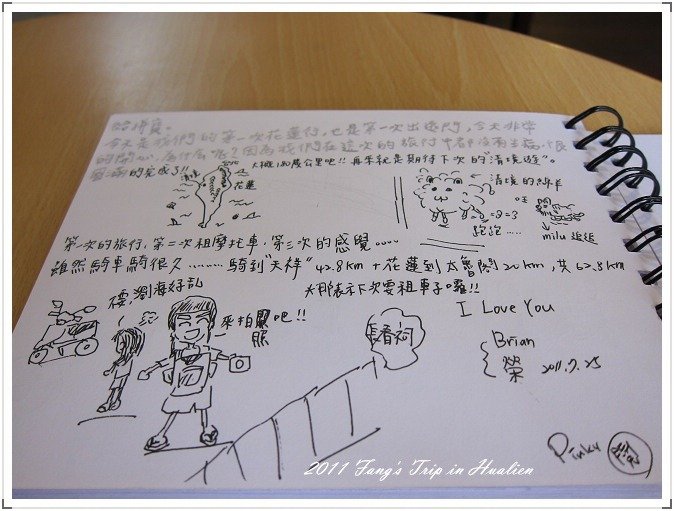 今天是我們的第一次花蓮行,也是第一次出遠門,今天非常
的開心,為什么呢?因為我們在這次的旅行中都沒有
的完成了!!
大概180幾公里吧!! 再來就是期待下次的"清境遊"。
清境
花蓮
清境的綿羊
咩
跑跑……
milu 追追
第一次的旅行,第二次租摩托車,第三次的感覺……
雖然騎車騎很久………騎到"天祥" 42.8km + 花蓮到太魯閣20km,共62.8km
表示下次要租車子囉!!
瀏海好亂
來拍照吧!!
照
長春祠
I Love You
Brian
榮 2011.7.25
Pinku
2011 Fang's Trip in Hualien